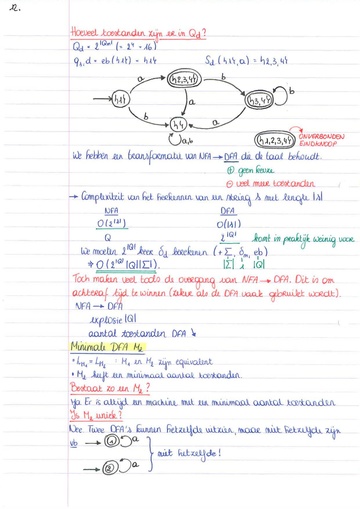 12.
Hoeveel toestanden zijn er in Qd?
Qd = 2^|Qn| (= 2⁴ = 16)
q₀,d = eb({1}) = {1} δd({1}, a) = {2,3,4}
{2,3,4}
a b
{1} a {3,4} b
b b
{ } a,b
{1,2,3,4} ONVERBONDEN
EINDKNOOP
We hebben een transformatie van NFA → DFA die de taal behoudt.
⊕ geen keuze
⊖ veel meer toestanden
→ Complexiteit van het herkennen van een string s met lengte |s|
NFA DFA
O(2^|s|) O(|s|)
Q 2^|Q| komt in praktijk weinig voor
We moeten 2^|Q| keer δd berekenen (+Σ, δn, eb)
⇒ O(2^|Q||Q||Σ|). |Σ| |Q|
Toch maken veel tools de overgang van NFA → DFA. Dit is om
achteraf tijd te winnen (zeker als de DFA vaak gebruikt wordt).
NFA → DFA
explosie |Q|
aantal toestanden DFA ↘
Minimale DFA M₂
• L_M₁ = L_M₂ : M₁ en M₂ zijn equivalent
• M₂ heeft een minimaal aantal toestanden.
Bestaat zo een M₂?
Ja Er is altijd een machine met een minimaal aantal toestanden
Is M₂ uniek?
Nee Twee DFA's kunnen hetzelfde uitzien, maar niet hetzelfde zijn
vb → 1 a
niet hetzelfde!
→ 2 a